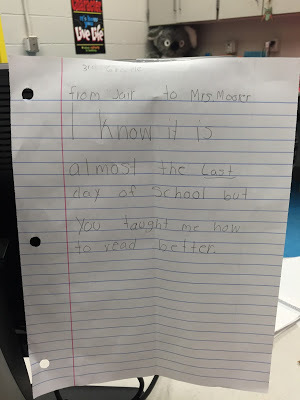 Live Life
3rd Grade
from Jair to Mrs. Moorer
I know it is
almost the Last
day of School but
you taught me how
to read better.